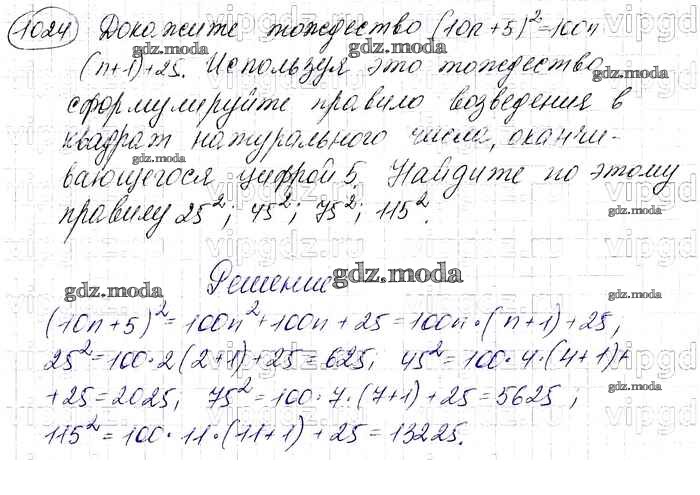 1024 Докажите тождество (10n+5)²=100n
(n+1)+25. Используя это тождество,
сформулируйте правило возведения в
квадрат натурального числа, оканчи-
вающегося цифрой 5. Найдите по этому
правилу 25²; 45²; 75²; 115².
Решение
(10n+5)²=100n²+100n+25=100n·(n+1)+25;
25²=100·2(2+1)+25=625; 45²=100·4·(4+1)+
+25=2025; 75²=100·7·(7+1)+25=5625;
115²=100·11·(11+1)+25=13225.
gdz.moda
vipgdz.ru